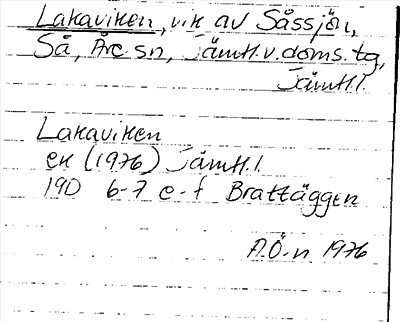 Lakaviken, vik av Såssjön,
Så, Åre sn, Jämtl.v.doms.tg,
Jämtl.l.
Lakaviken
ek (1976) Jämtl.l.
19D 6-7 e-f Brattäggen
A.Ö-n 1976